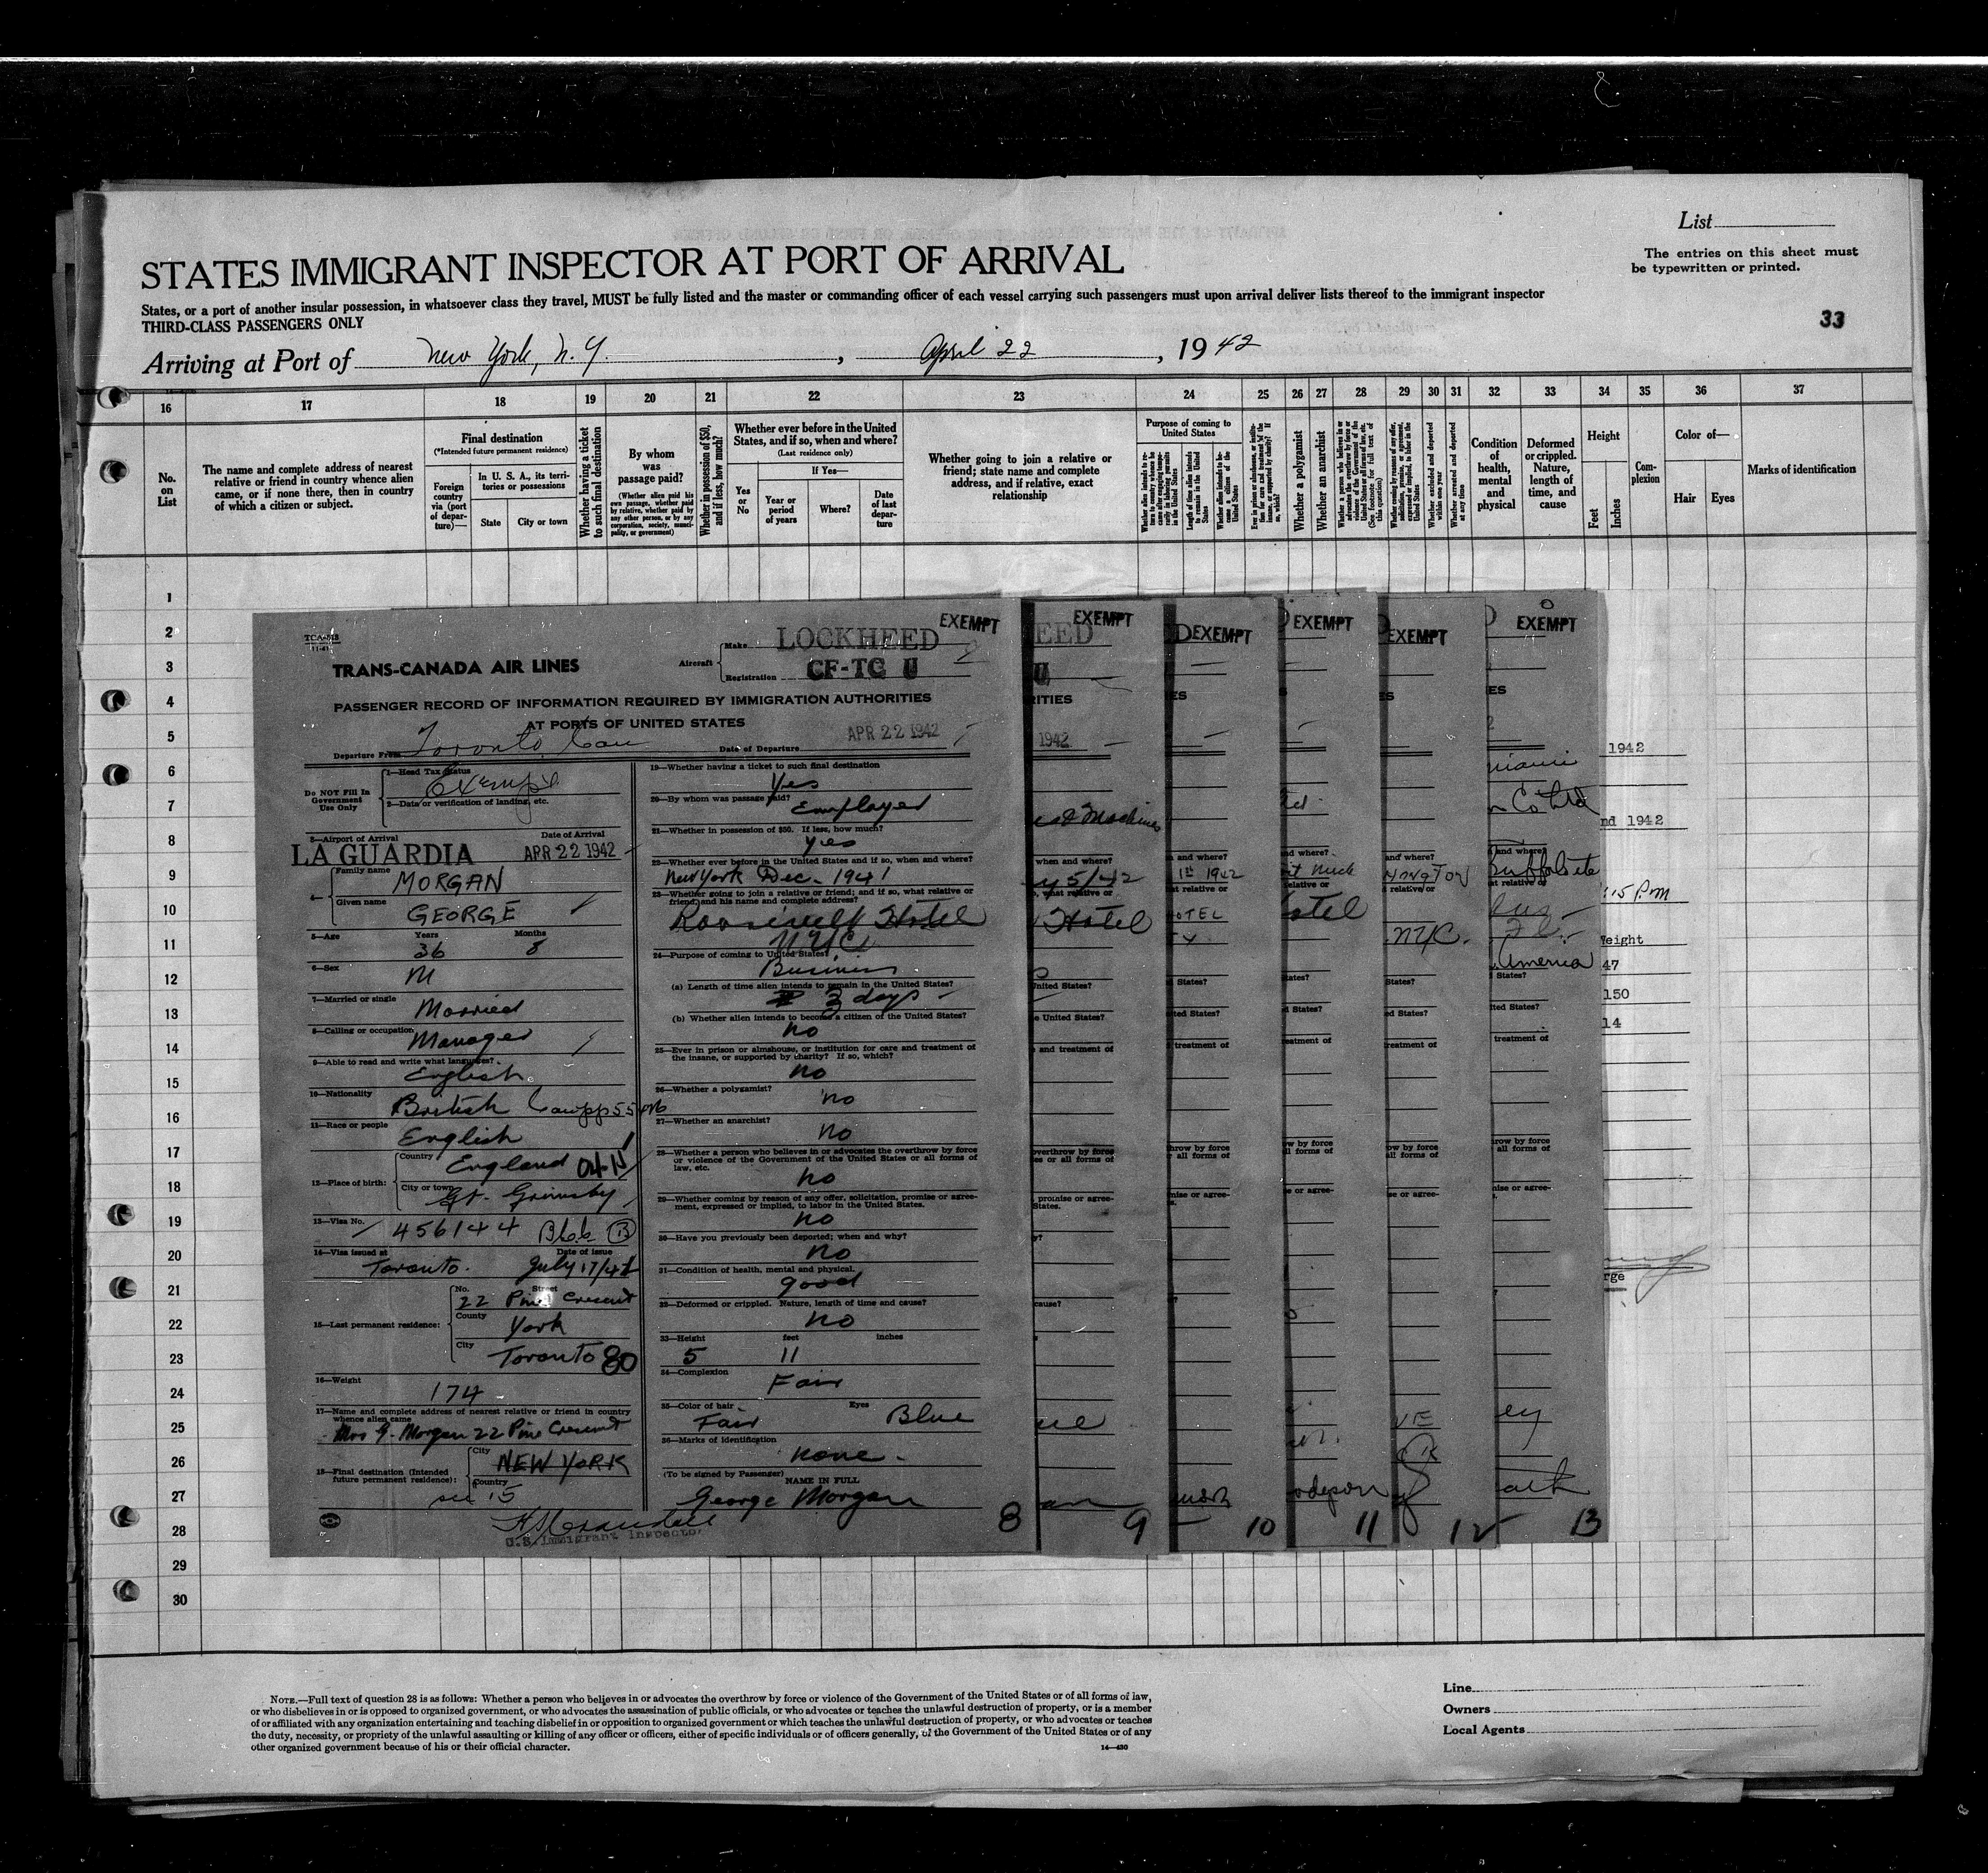 List
The entries on this sheet must
be typewritten or printed.
STATES IMMIGRANT INSPECTOR AT PORT OF ARRIVAL
States, or a port of another insular possession, in whatsoever class they travel, MUST be fully listed and the master or commanding officer of each vessel carrying such passengers must upon arrival deliver lists thereof to the immigrant inspector
THIRD-CLASS PASSENGERS ONLY
33
Arriving at Port of New York, N.Y., April 22, 1942
16 17 18 19 20 21 22 23 24 25 26 27 28 29 30 31 32 33 34 35 36 37
No.
on
List
The name and complete address of nearest
relative or friend in country whence alien
came, or if none there, then in country
of which a citizen or subject.
Final destination
(*Intended future permanent residence)
Foreign
country
via (port
of depar-
ture)—
In U. S. A., its terri-
tories or possessions
State
City or town
Whether having a ticket
to such final destination
By whom
was
passage paid?
(Whether alien paid his
own passage, whether paid
by relative, whether paid by
any other person, or by any
corporation, society, munici-
pality, or government)
Whether in possession of $50,
and if less, how much?
Whether ever before in the United
States, and if so, when and where?
(Last residence only)
Yes
or
No
If Yes—
Year or
period
of years
Where?
Date
of last
depar-
ture
Whether going to join a relative or
friend; state name and complete
address, and if relative, exact
relationship
Purpose of coming to
United States
Length of time alien intends
to remain in the United
States
Whether alien intends to be-
come a citizen of the
United States
Whether a polygamist
Whether an anarchist
Whether arrested and deported
within one year
Whether arrested and deported
at any time
Condition
of
health,
mental
and
physical
Deformed
or crippled.
Nature,
length of
time, and
cause
Height
Feet
Inches
Com-
plexion
Color of—
Hair
Eyes
Marks of identification
1
2
3
4
5
6
7
8
9
10
11
12
13
14
15
16
17
18
19
20
21
22
23
24
25
26
27
28
29
30
TCA-518
11-41
TRANS-CANADA AIR LINES
Aircraft
Make LOCKHEED
Registration CF-TC U
EXEMPT
PASSENGER RECORD OF INFORMATION REQUIRED BY IMMIGRATION AUTHORITIES
AT PORTS OF UNITED STATES
Departure From Toronto Can
Date of Departure APR 22 1942
Do NOT Fill In
Government
Use Only
1—Head Tax Status
Exempt
2—Data or verification of landing, etc.
3—Airport of Arrival
Date of Arrival
LA GUARDIA APR 22 1942
4—
Family name
MORGAN
Given name
GEORGE
5—Age Years Months
36 8
6—Sex
M
7—Married or single
Married
8—Calling or occupation
Manager
9—Able to read and write what languages?
English
10—Nationality
British
11—Race or people
English
12—Place of birth:
Country
England
City or town
Gt. Grimsby
13—Visa No.
456144
14—Visa issued at Date of issue
Toronto. July 17/41
15—Last permanent residence:
No. Street
22 Pine Crescent
County
York
City
Toronto 80
16—Weight
174
17—Name and complete address of nearest relative or friend in country
whence alien came
Mrs G. Morgan 22 Pine Crescent
18—Final destination (Intended
future permanent residence):
City
NEW YORK
Country
see 15
U.S. Immigrant Inspector
19—Whether having a ticket to such final destination
Yes
20—By whom was passage paid?
Employer
21—Whether in possession of $50. If less, how much?
Yes
22—Whether ever before in the United States and if so, when and where?
New York Dec. 1941
23—Whether going to join a relative or friend; and if so, what relative or
friend, and his name and complete address?
Roosevelt Hotel
N.Y.C.
24—Purpose of coming to United States?
Business
(a) Length of time alien intends to remain in the United States?
3 days
(b) Whether alien intends to become a citizen of the United States?
no
25—Ever in prison or almshouse, or institution for care and treatment of
the insane, or supported by charity? If so, which?
no
26—Whether a polygamist?
no
27—Whether an anarchist?
no
28—Whether a person who believes in or advocates the overthrow by force
or violence of the Government of the United States or all forms of
law, etc.
no
29—Whether coming by reason of any offer, solicitation, promise or agree-
ment, expressed or implied, to labor in the United States.
no
30—Have you previously been deported; when and why?
no
31—Condition of health, mental and physical.
good
32—Deformed or crippled. Nature, length of time and cause?
no
33—Height feet inches
5 11
34—Complexion
Fair
35—Color of hair Eyes
Fair Blue
36—Marks of identification
none.
(To be signed by Passenger) NAME IN FULL
George Morgan
8
EXEMPT
EED
U
RITIES
1942
when and where?
y 5/42
Hotel
9
EXEMPT
ES
and where?
1st 1942
HOTEL
10
EXEMPT
11
EXEMPT
and where?
HINGTON
NYC.
12
EXEMPT
Co Ltd
and where?
Buffalo
America
13
1942
nd 1942
:15 P.M
Weight
47
150
14
rge
NOTE.—Full text of question 28 is as follows: Whether a person who believes in or advocates the overthrow by force or violence of the Government of the United States or of all forms of law,
or who disbelieves in or is opposed to organized government, or who advocates the assassination of public officials, or who advocates or teaches the unlawful destruction of property, or is a member
of or affiliated with any organization entertaining and teaching disbelief in or opposition to organized government or which teaches the unlawful destruction of property, or who advocates or teaches
the duty, necessity, or propriety of the unlawful assaulting or killing of any officer or officers, either of specific individuals or of officers generally, of the Government of the United States or of any
other organized government because of his or their official character.
14—430
Line
Owners
Local Agents